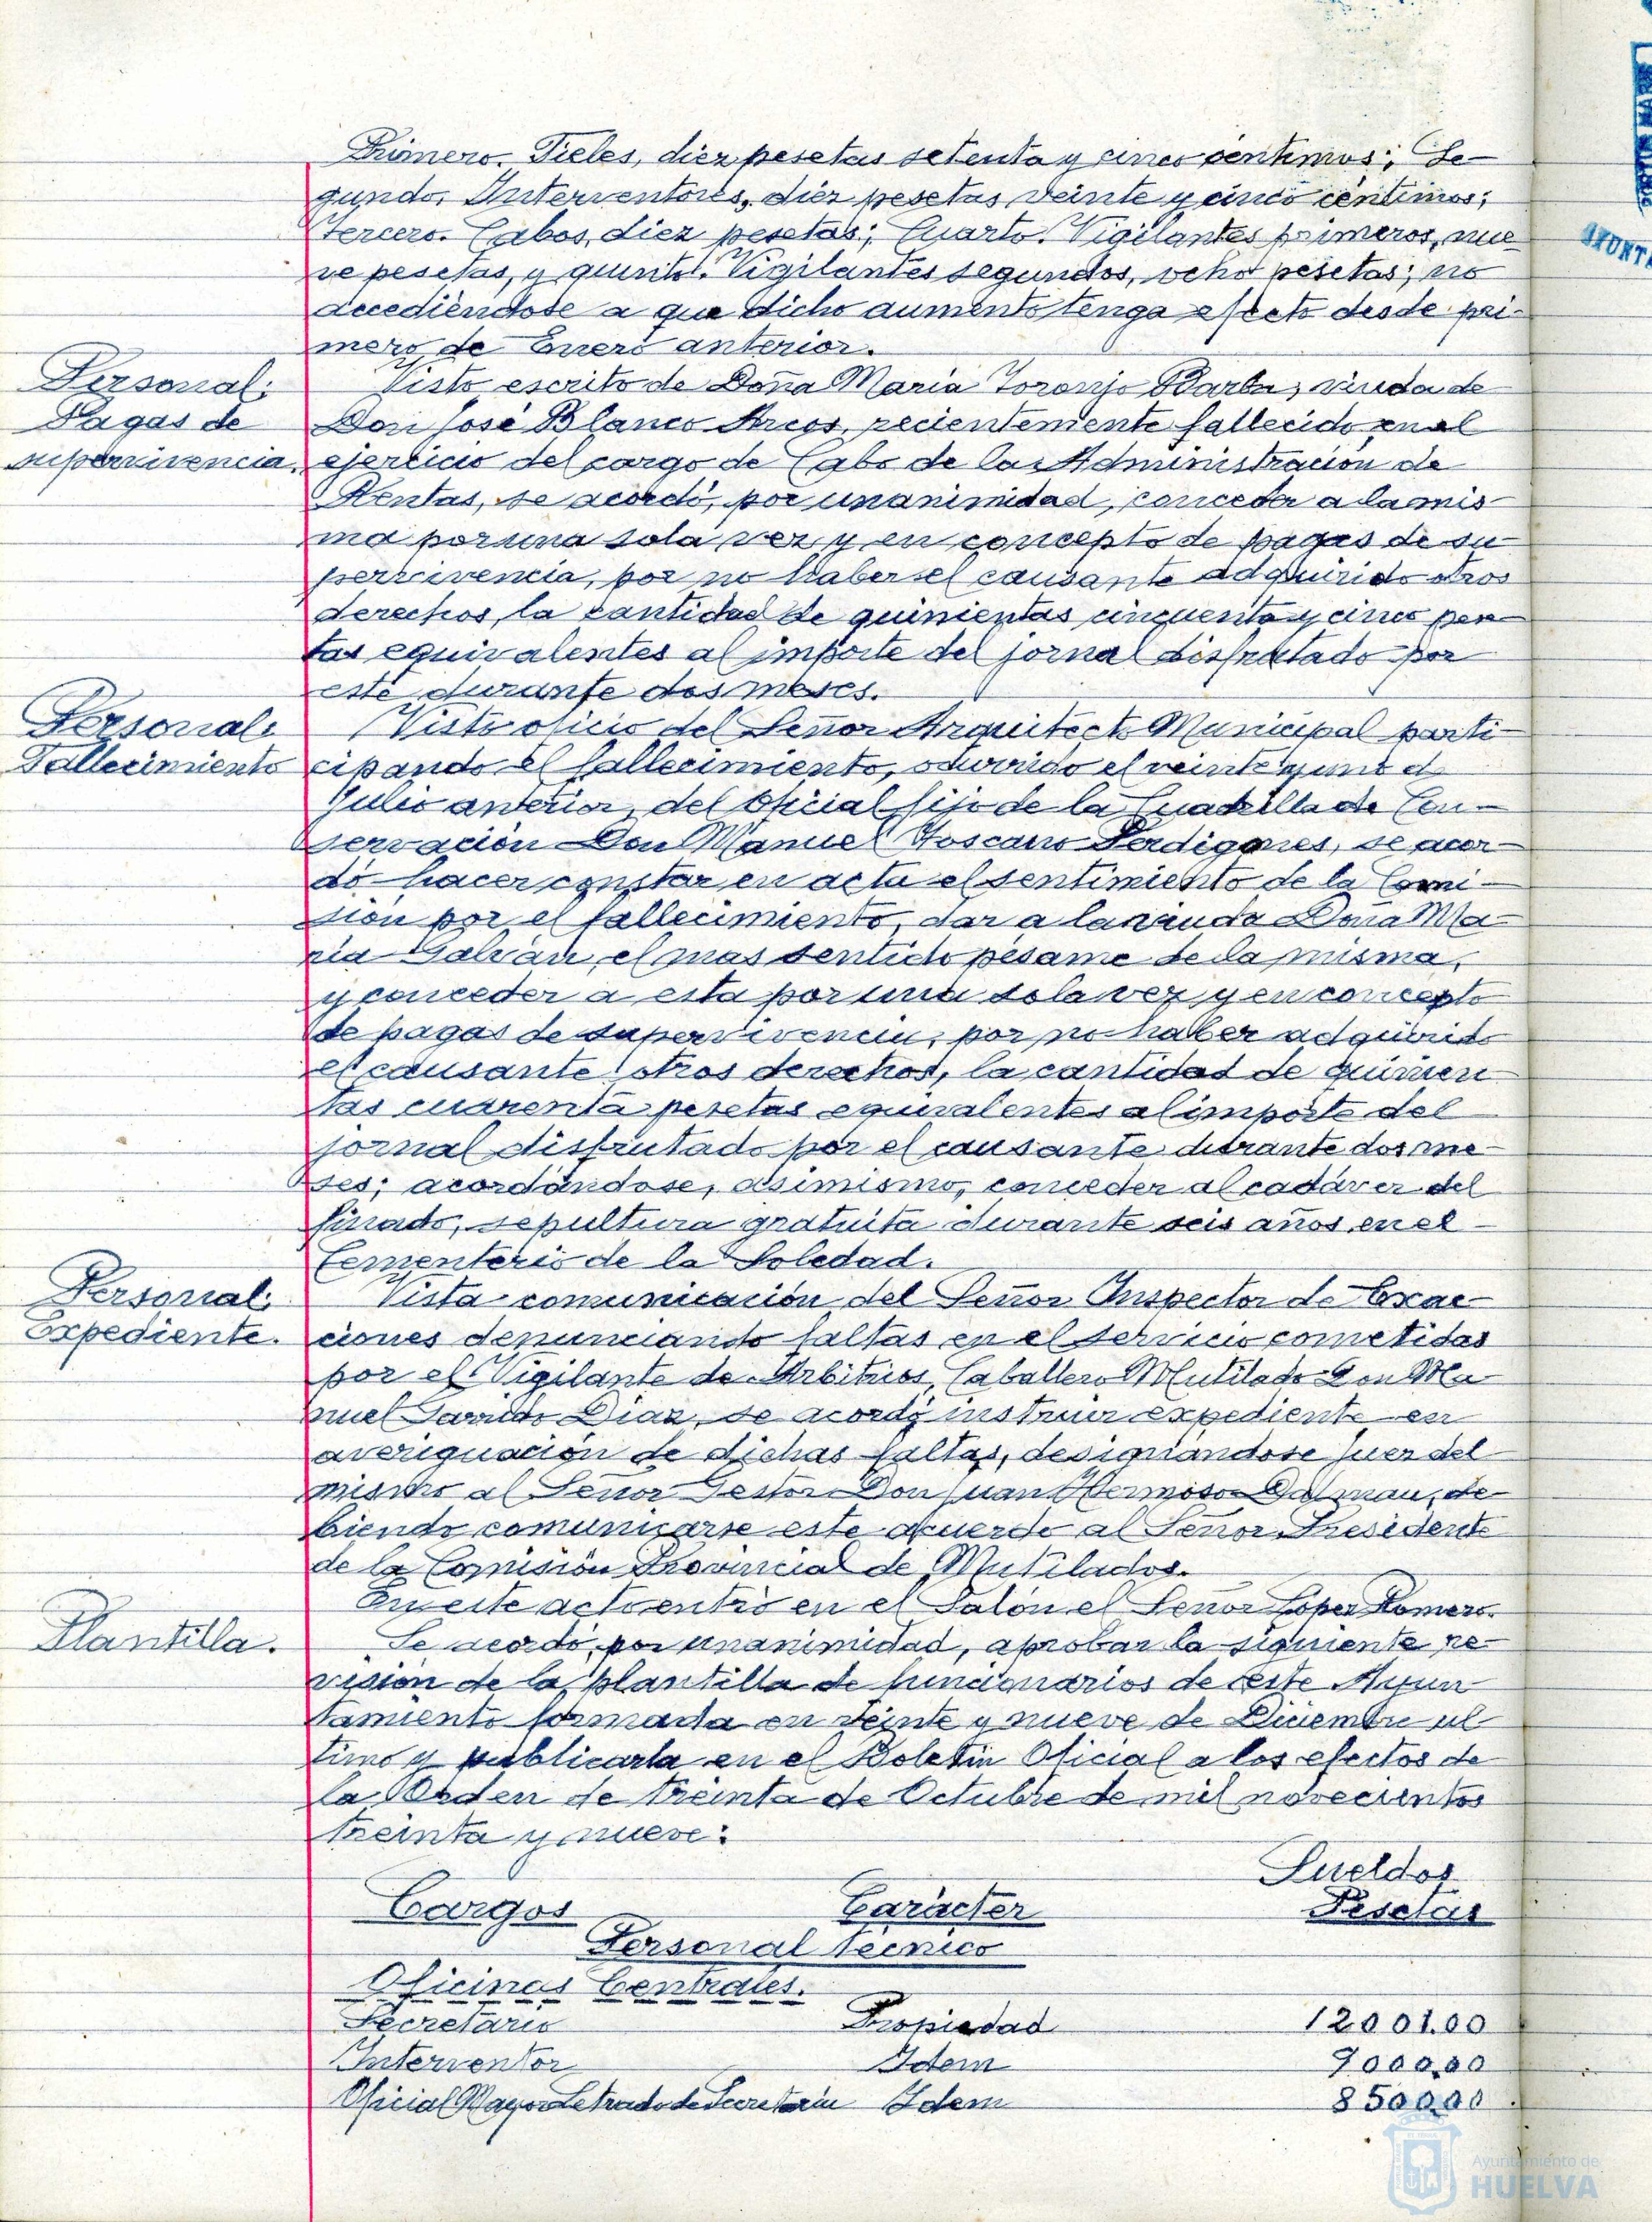 Primero. Fieles, diez pesetas setenta y cinco céntimos; Se-
gundo. Interventores, diez pesetas veinte y cinco céntimos;
tercero. Cabos, diez pesetas; Cuarto. Vigilantes primeros, nue-
ve pesetas, y quinto. Vigilantes segundos, ocho pesetas; no
accediéndose a que dicho aumento tenga efecto desde pri-
mero de Enero anterior.
Personal:
Pagas de
supervivencia.
Visto escrito de Doña María Toronjo Barba, viuda de
Don José Blanco Arcos, recientemente fallecido en el
ejercicio del cargo de Cabo de la Administración de
Rentas, se acordó, por unanimidad, conceder a la mis-
ma por una sola vez y en concepto de pagas de su-
pervivencia, por no haber el causante adquirido otros
derechos, la cantidad de quinientas cincuenta y cinco pese-
tas equivalentes al importe del jornal disfrutado por
este durante dos meses.
Personal:
Fallecimiento
Visto oficio del Señor Arquitecto Municipal parti-
cipando el fallecimiento, ocurrido el veinte y uno de
Julio anterior, del oficial fijo de la Cuadrilla de Con-
servación Don Manuel Toscano Perdigones, se acor-
dó hacer constar en acta el sentimiento de la Comi-
sión por el fallecimiento, dar a la viuda Doña Ma-
ría Galván, el mas sentido pésame de la misma,
y conceder a esta por una sola vez y en concepto
de pagas de supervivencia, por no haber adquirido
el causante otros derechos, la cantidad de quinien-
tas cuarenta pesetas equivalentes al importe del
jornal disfrutado por el causante durante dos me-
ses; acordándose, asimismo, conceder al cadáver del
finado, sepultura gratuita durante seis años en el
Cementerio de la Soledad.
Personal:
Expediente.
Vista comunicación del Señor Inspector de Exac-
ciones denunciando faltas en el servicio cometidas
por el Vigilante de Arbitrios, Caballero Mutilado Don Ma-
nuel Garrido Diaz, se acordó instruir expediente en
averiguación de dichas faltas, designándose Juez del
mismo al Señor Gestor Don Juan Hermoso Dalmau, de-
biendo comunicarse este acuerdo al Señor Presidente
de la Comisión Provincial de Mutilados.
En este acto entró en el Salón el Señor López Romero.
Plantilla.
Se acordó, por unanimidad, aprobar la siguiente re-
visión de la plantilla de funcionarios de este Ayun-
tamiento formada en veinte y nueve de Diciembre úl-
timo y publicarla en el Boletín Oficial a los efectos de
la Orden de treinta de Octubre de mil novecientos
treinta y nueve:
Sueldos
Cargos Carácter Pesetas
Personal técnico
Oficinas Centrales.
Secretario Propiedad 12001.00
Interventor Idem 9000.00
Oficial Mayor Letrado de Secretaría Idem 8500.00
Ayuntamiento de
HUELVA